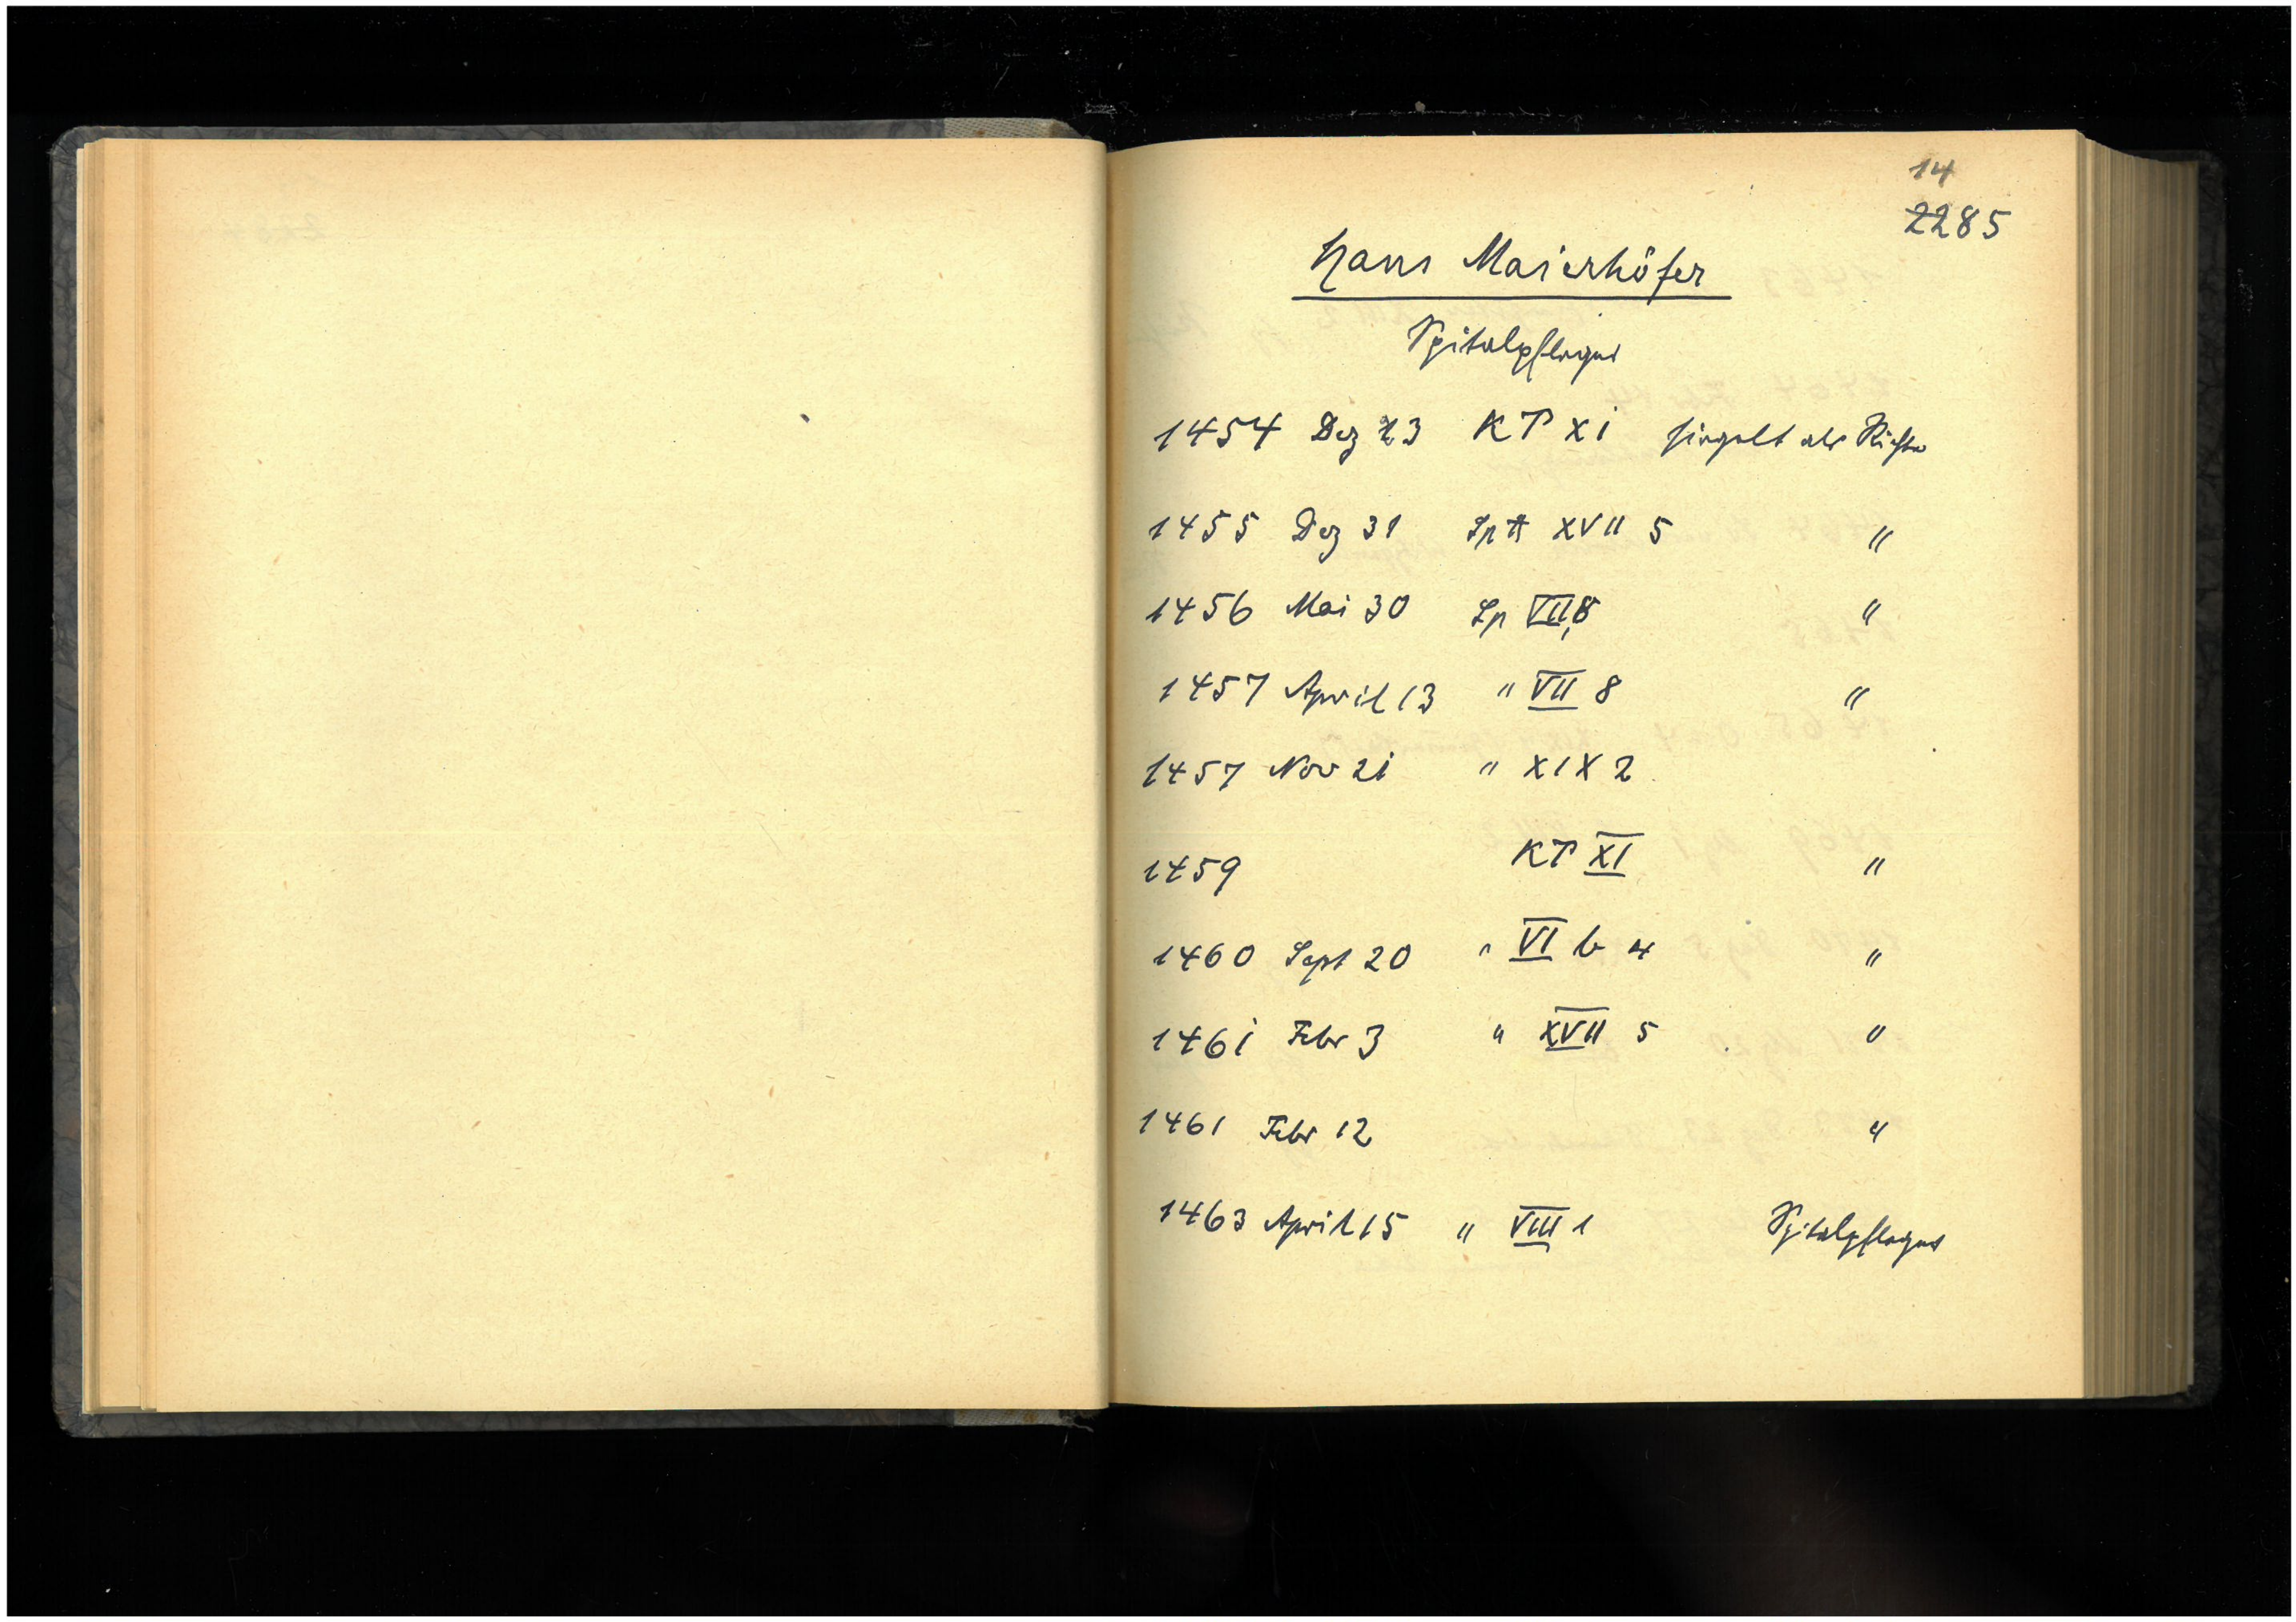 14
2285
Hans Maierhöfer
Spitalpfleger
1454 Dez 23 KT XI siegelt als Richter
1455 Dez 31 Sp XVII 5 "
1456 Mai 30 Sp VII,8 "
1457 April 13 " VII 8 "
1457 Nov 21 " XIX 2
1459 KT XI "
1460 Sept 20 " VI b 4 "
1461 Febr 3 " XVII 5 "
1461 Febr 12 "
1463 April 15 " VIII 1 Spitalpfleger